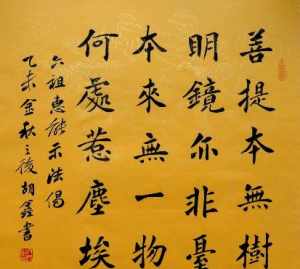 菩提本無樹
明鏡亦非臺
本來無一物
何處惹塵埃
六祖惠能示法偈
乙未金秋之後胡鑫書